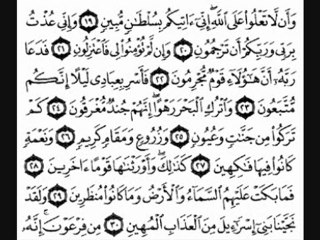 وَأَن لَّا تَعْلُوا۟ عَلَى ٱللَّهِ ۖ إِنِّىٓ ءَاتِيكُم بِسُلْطَٰنٍ مُّبِينٍ ﴿١٩﴾ وَإِنِّى عُذْتُ
بِرَبِّى وَرَبِّكُمْ أَن تَرْجُمُونِ ﴿٢٠﴾ وَإِن لَّمْ تُؤْمِنُوا۟ لِى فَٱعْتَزِلُونِ ﴿٢١﴾ فَدَعَا
رَبَّهُۥٓ أَنَّ هَٰٓؤُلَآءِ قَوْمٌ مُّجْرِمُونَ ﴿٢٢﴾ فَأَسْرِ بِعِبَادِى لَيْلًا إِنَّكُم
مُّتَّبَعُونَ ﴿٢٣﴾ وَٱتْرُكِ ٱلْبَحْرَ رَهْوًا ۖ إِنَّهُمْ جُندٌ مُّغْرَقُونَ ﴿٢٤﴾ كَمْ
تَرَكُوا۟ مِن جَنَّٰتٍ وَعُيُونٍ ﴿٢٥﴾ وَزُرُوعٍ وَمَقَامٍ كَرِيمٍ ﴿٢٦﴾ وَنَعْمَةٍ
كَانُوا۟ فِيهَا فَٰكِهِينَ ﴿٢٧﴾ كَذَٰلِكَ ۖ وَأَوْرَثْنَٰهَا قَوْمًا ءَاخَرِينَ ﴿٢٨﴾
فَمَا بَكَتْ عَلَيْهِمُ ٱلسَّمَآءُ وَٱلْأَرْضُ وَمَا كَانُوا۟ مُنظَرِينَ ﴿٢٩﴾ وَلَقَدْ
نَجَّيْنَا بَنِىٓ إِسْرَٰٓءِيلَ مِنَ ٱلْعَذَابِ ٱلْمُهِينِ ﴿٣٠﴾ مِن فِرْعَوْنَ ۚ إِنَّهُۥ